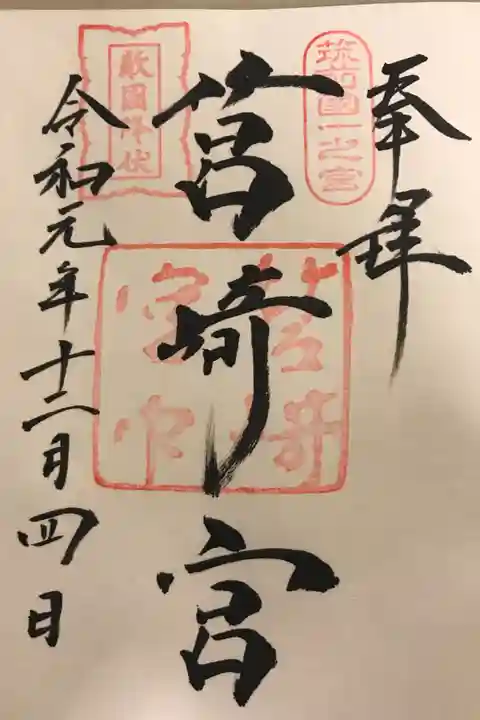 奉拝
筑前國一之宮
筥崎宮
敵國降伏
令和元年十二月四日